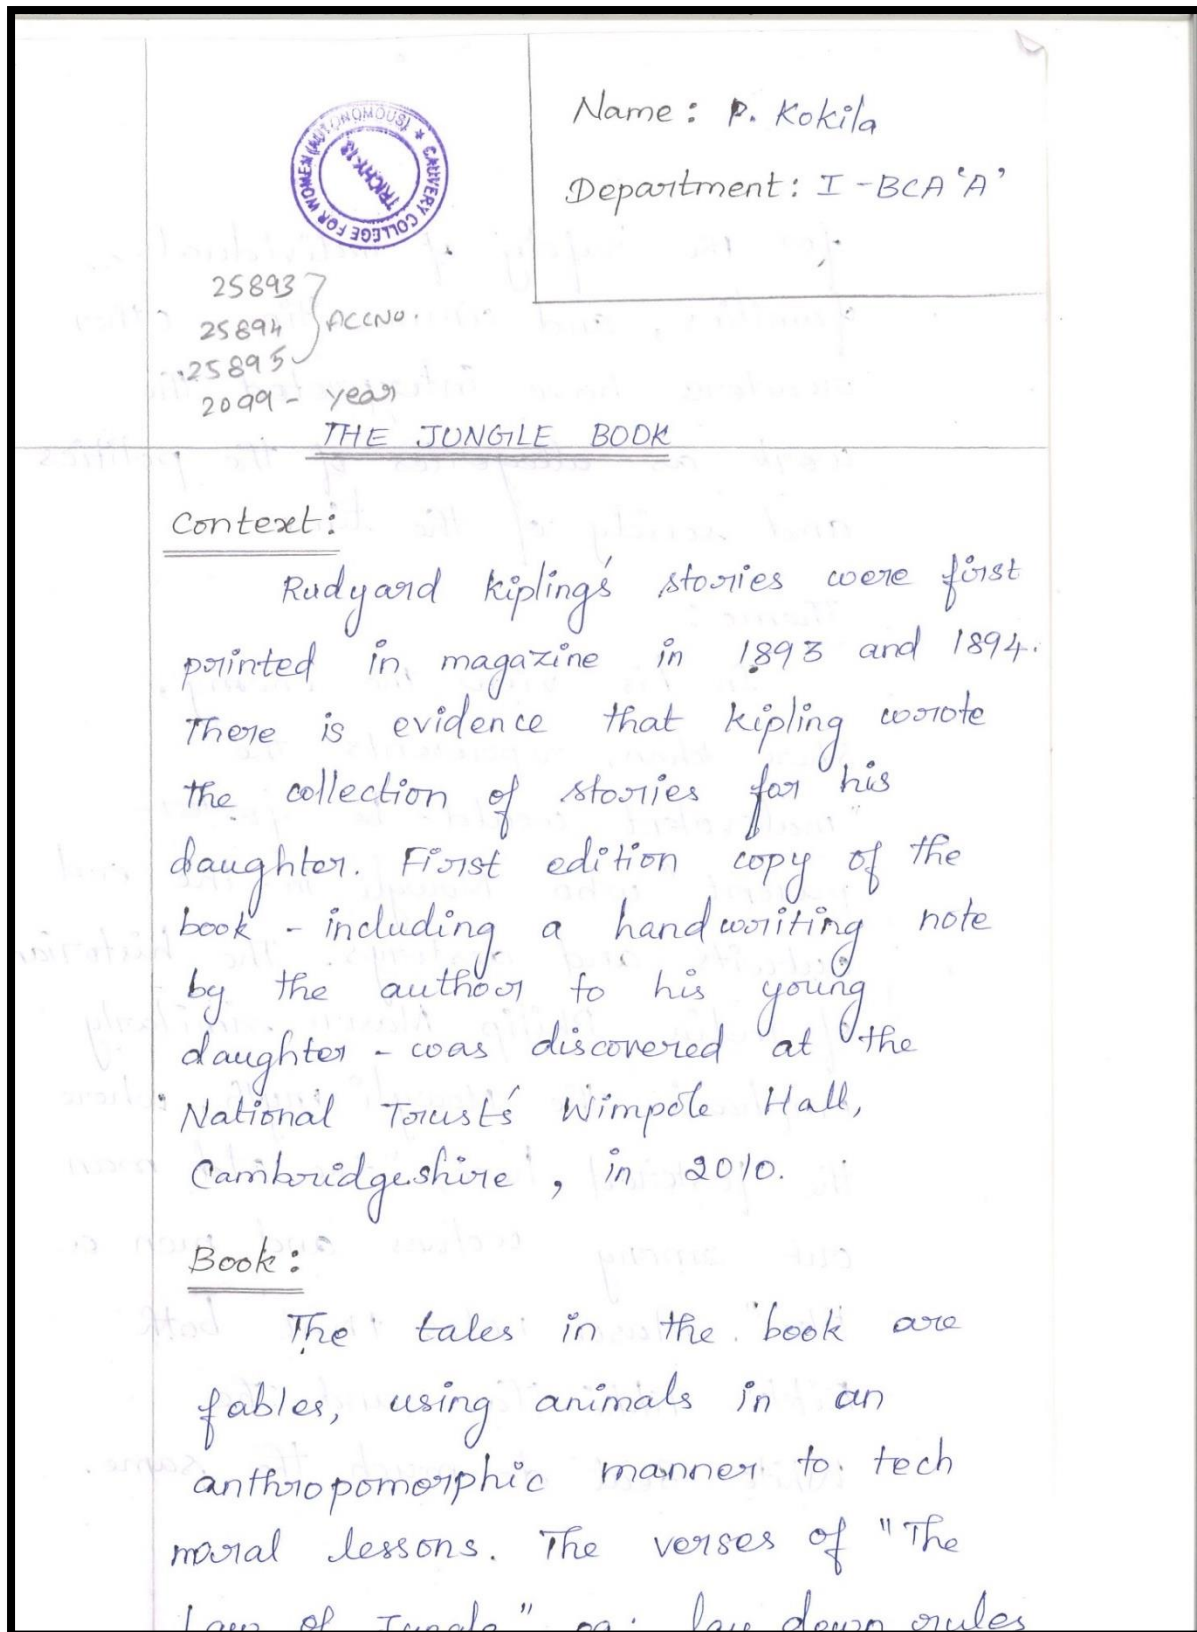 CAUVERY COLLEGE FOR WOMEN (AUTONOMOUS) *
Name : P. Kokila
Department : I - BCA 'A'
25893
25894 } ACCNO.
25895
2099 - year
THE JUNGLE BOOK
Context :
Rudyard Kipling's stories were first
printed in magazine in 1893 and 1894.
There is evidence that Kipling wrote
the collection of stories for his
daughter. First edition copy of the
book - including a handwriting note
by the author to his young
daughter - was discovered at the
National Trust's Wimpole Hall,
Cambridgeshire, in 2010.
Book :
The tales in the book are
fables, using animals in an
anthropomorphic manner to tech
moral lessons. The verses of "The
Law of Jungle" lay down rules